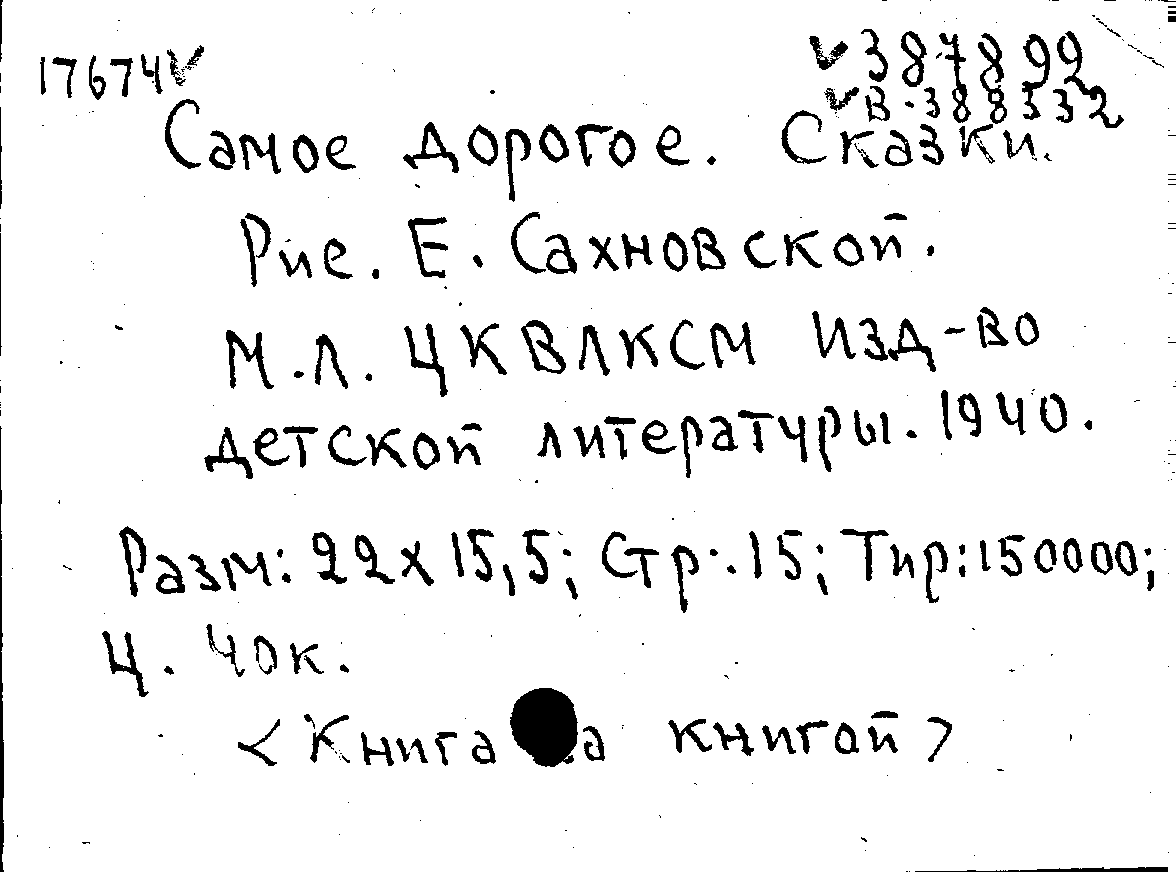 17674 ✓ ✓ 387899
✓ В-388332
Самое дорогое. Сказки.
Рис. Е. Сахновской.
М.Л. ЦКВЛКСМ ИЗД-ВО
детской литературы. 1940.
Разм: 22х15,5; Стр:.15; Тир:150000;
Ц. 40к.
<Книга за книгой>